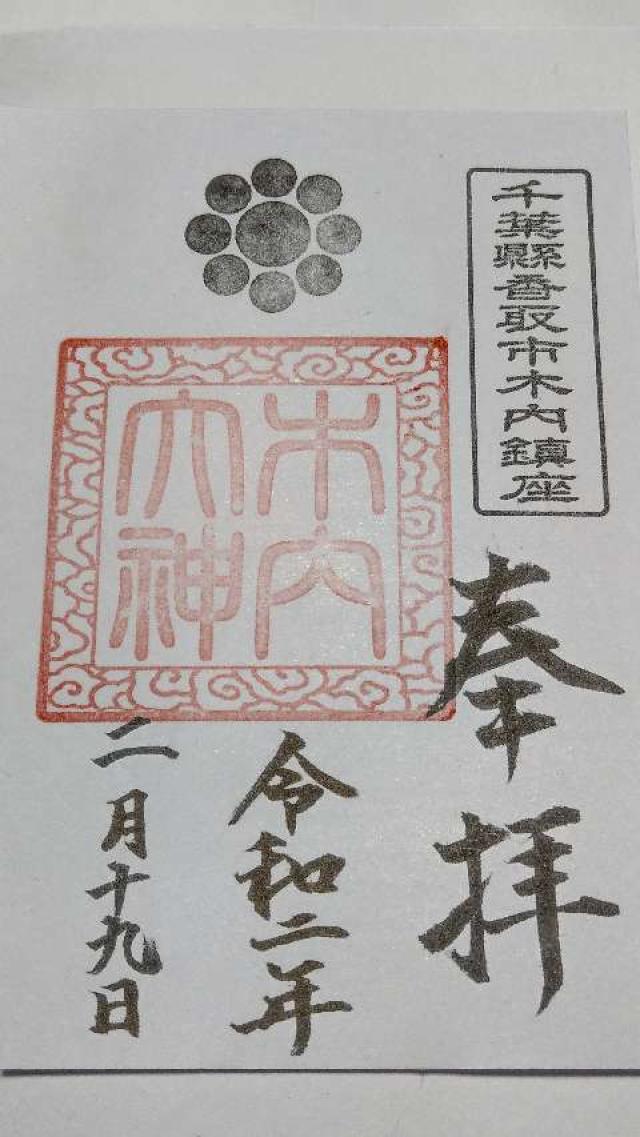 千葉縣香取市木内鎮座
奉拝
木内
大神
令和二年
二月十九日